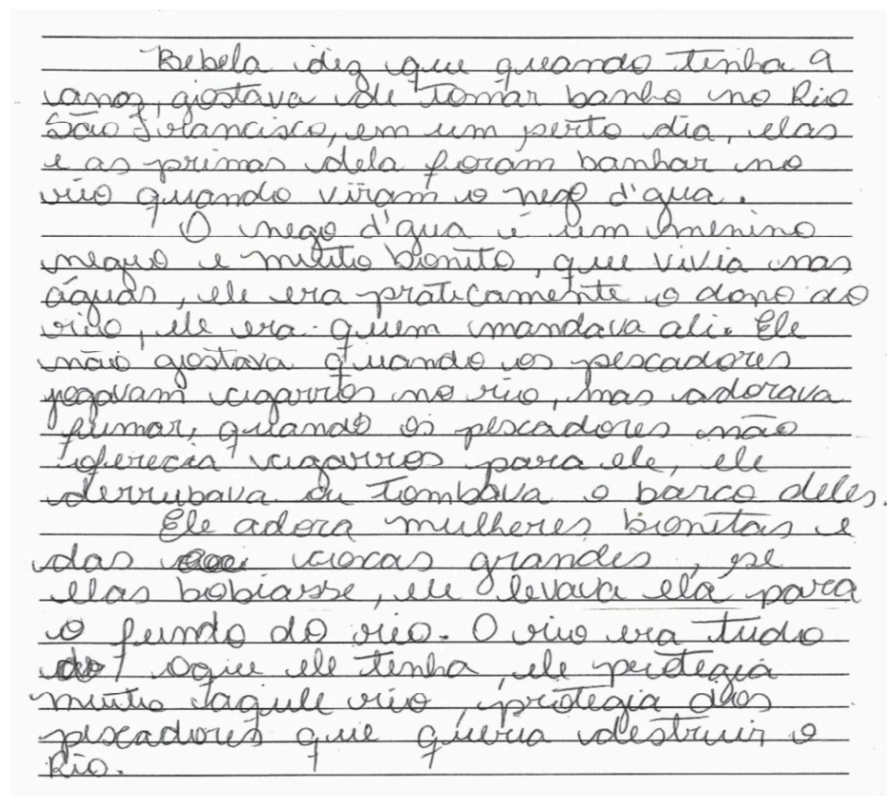 Bebela diz que quando tinha 9
anos, gostava de tomar banho no Rio
São Francisco, em um perto dia, elas
e as primas dela foram banhar no
rio quando viram o nego d'gua.
O nego d'gua é um menino
negro e muito bonito, que vivia nas
águas, ele era praticamente o dono do
rio, ele era quem mandava ali. Ele
não gostava quando os pescadores
jogavam cigarros no rio, mas adorava
fumar, quando os pescadores não
oferecia cigarros para ele, ele
derrubava ou tombava o barco deles.
Ele adora mulheres bonitas e
das coxas grandes, se
elas bobiasse, ele levava ela para
o fundo do rio. O rio era tudo
oque ele tenha, ele protegia
muito daquele rio, protegia dos
pescadores que queria destruir o
Rio.